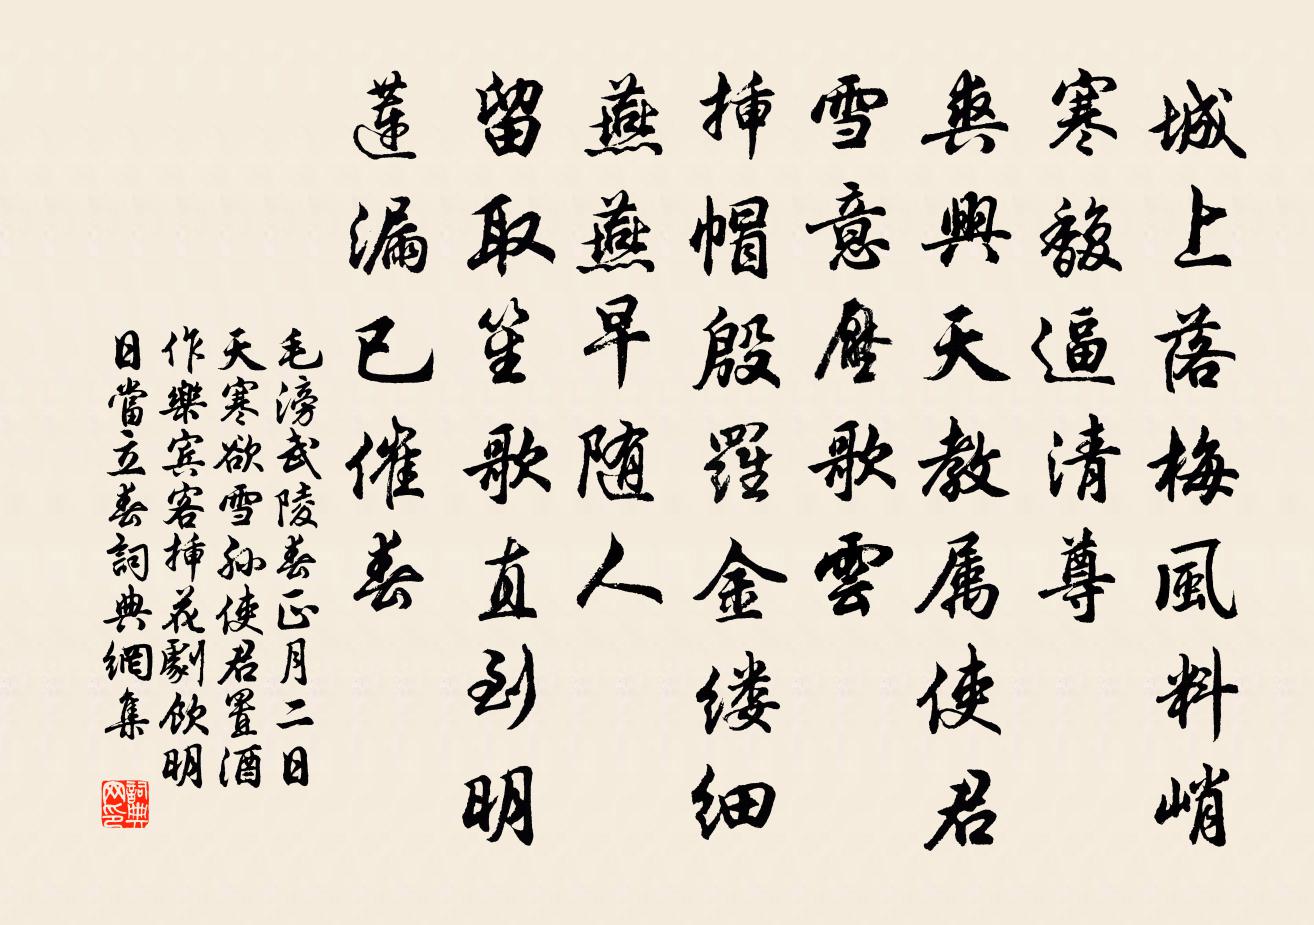 城上落梅風料峭
寒馥逼清尊
爽興天教属使君
雪意壓歌雲
揷帽殷羅金缕细
燕燕早随人
留取笙歌直到明
蓮漏已催春
毛滂武陵春正月二日
天寒欲雪孙使君置酒
作樂宾客揷花劇飲明
日當立春詞典網集
詞典网印